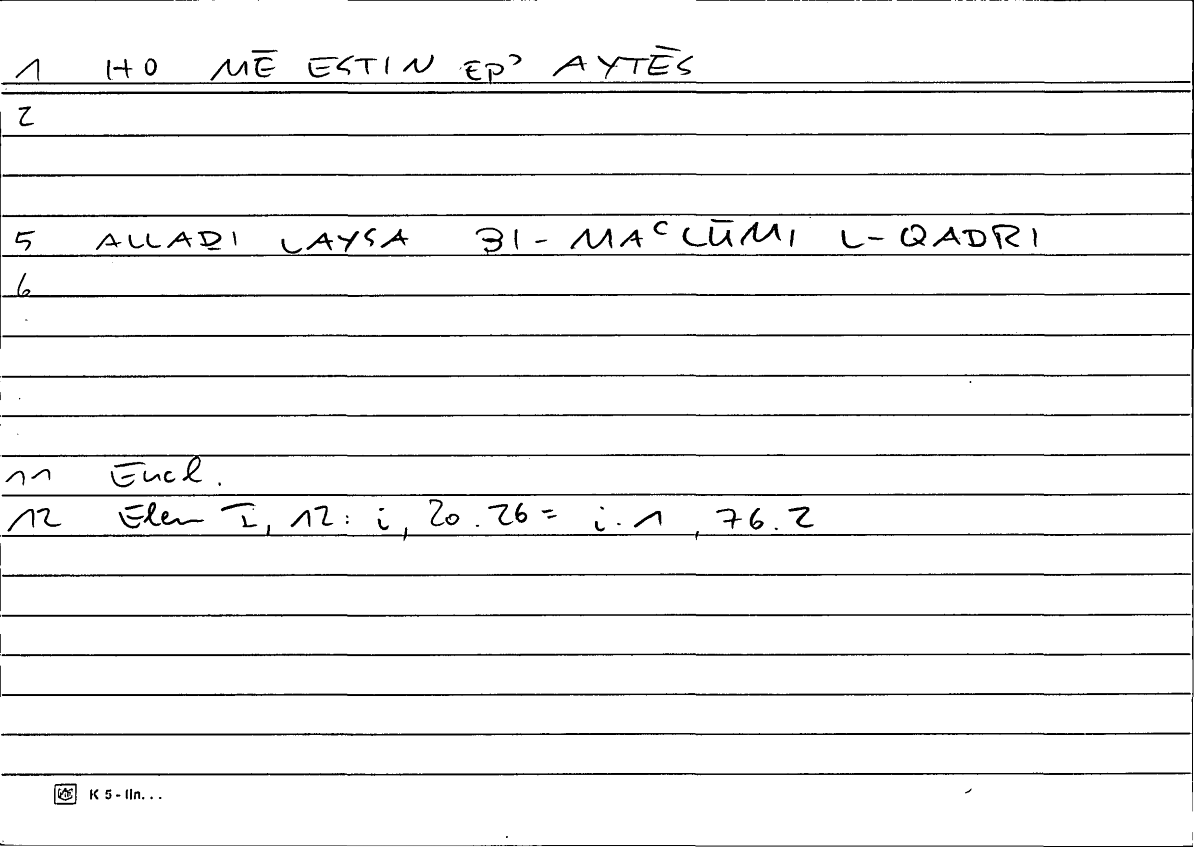 1 HO MĒ ESTIN EP' AYTĒS
2
5 ALLAḎI LAYSA BI-MAʿLŪMI L-QADRI
6
11 Eucl.
12 Elem I, 12: i, 20.26 = i.1, 76.2
K 5 - lin...